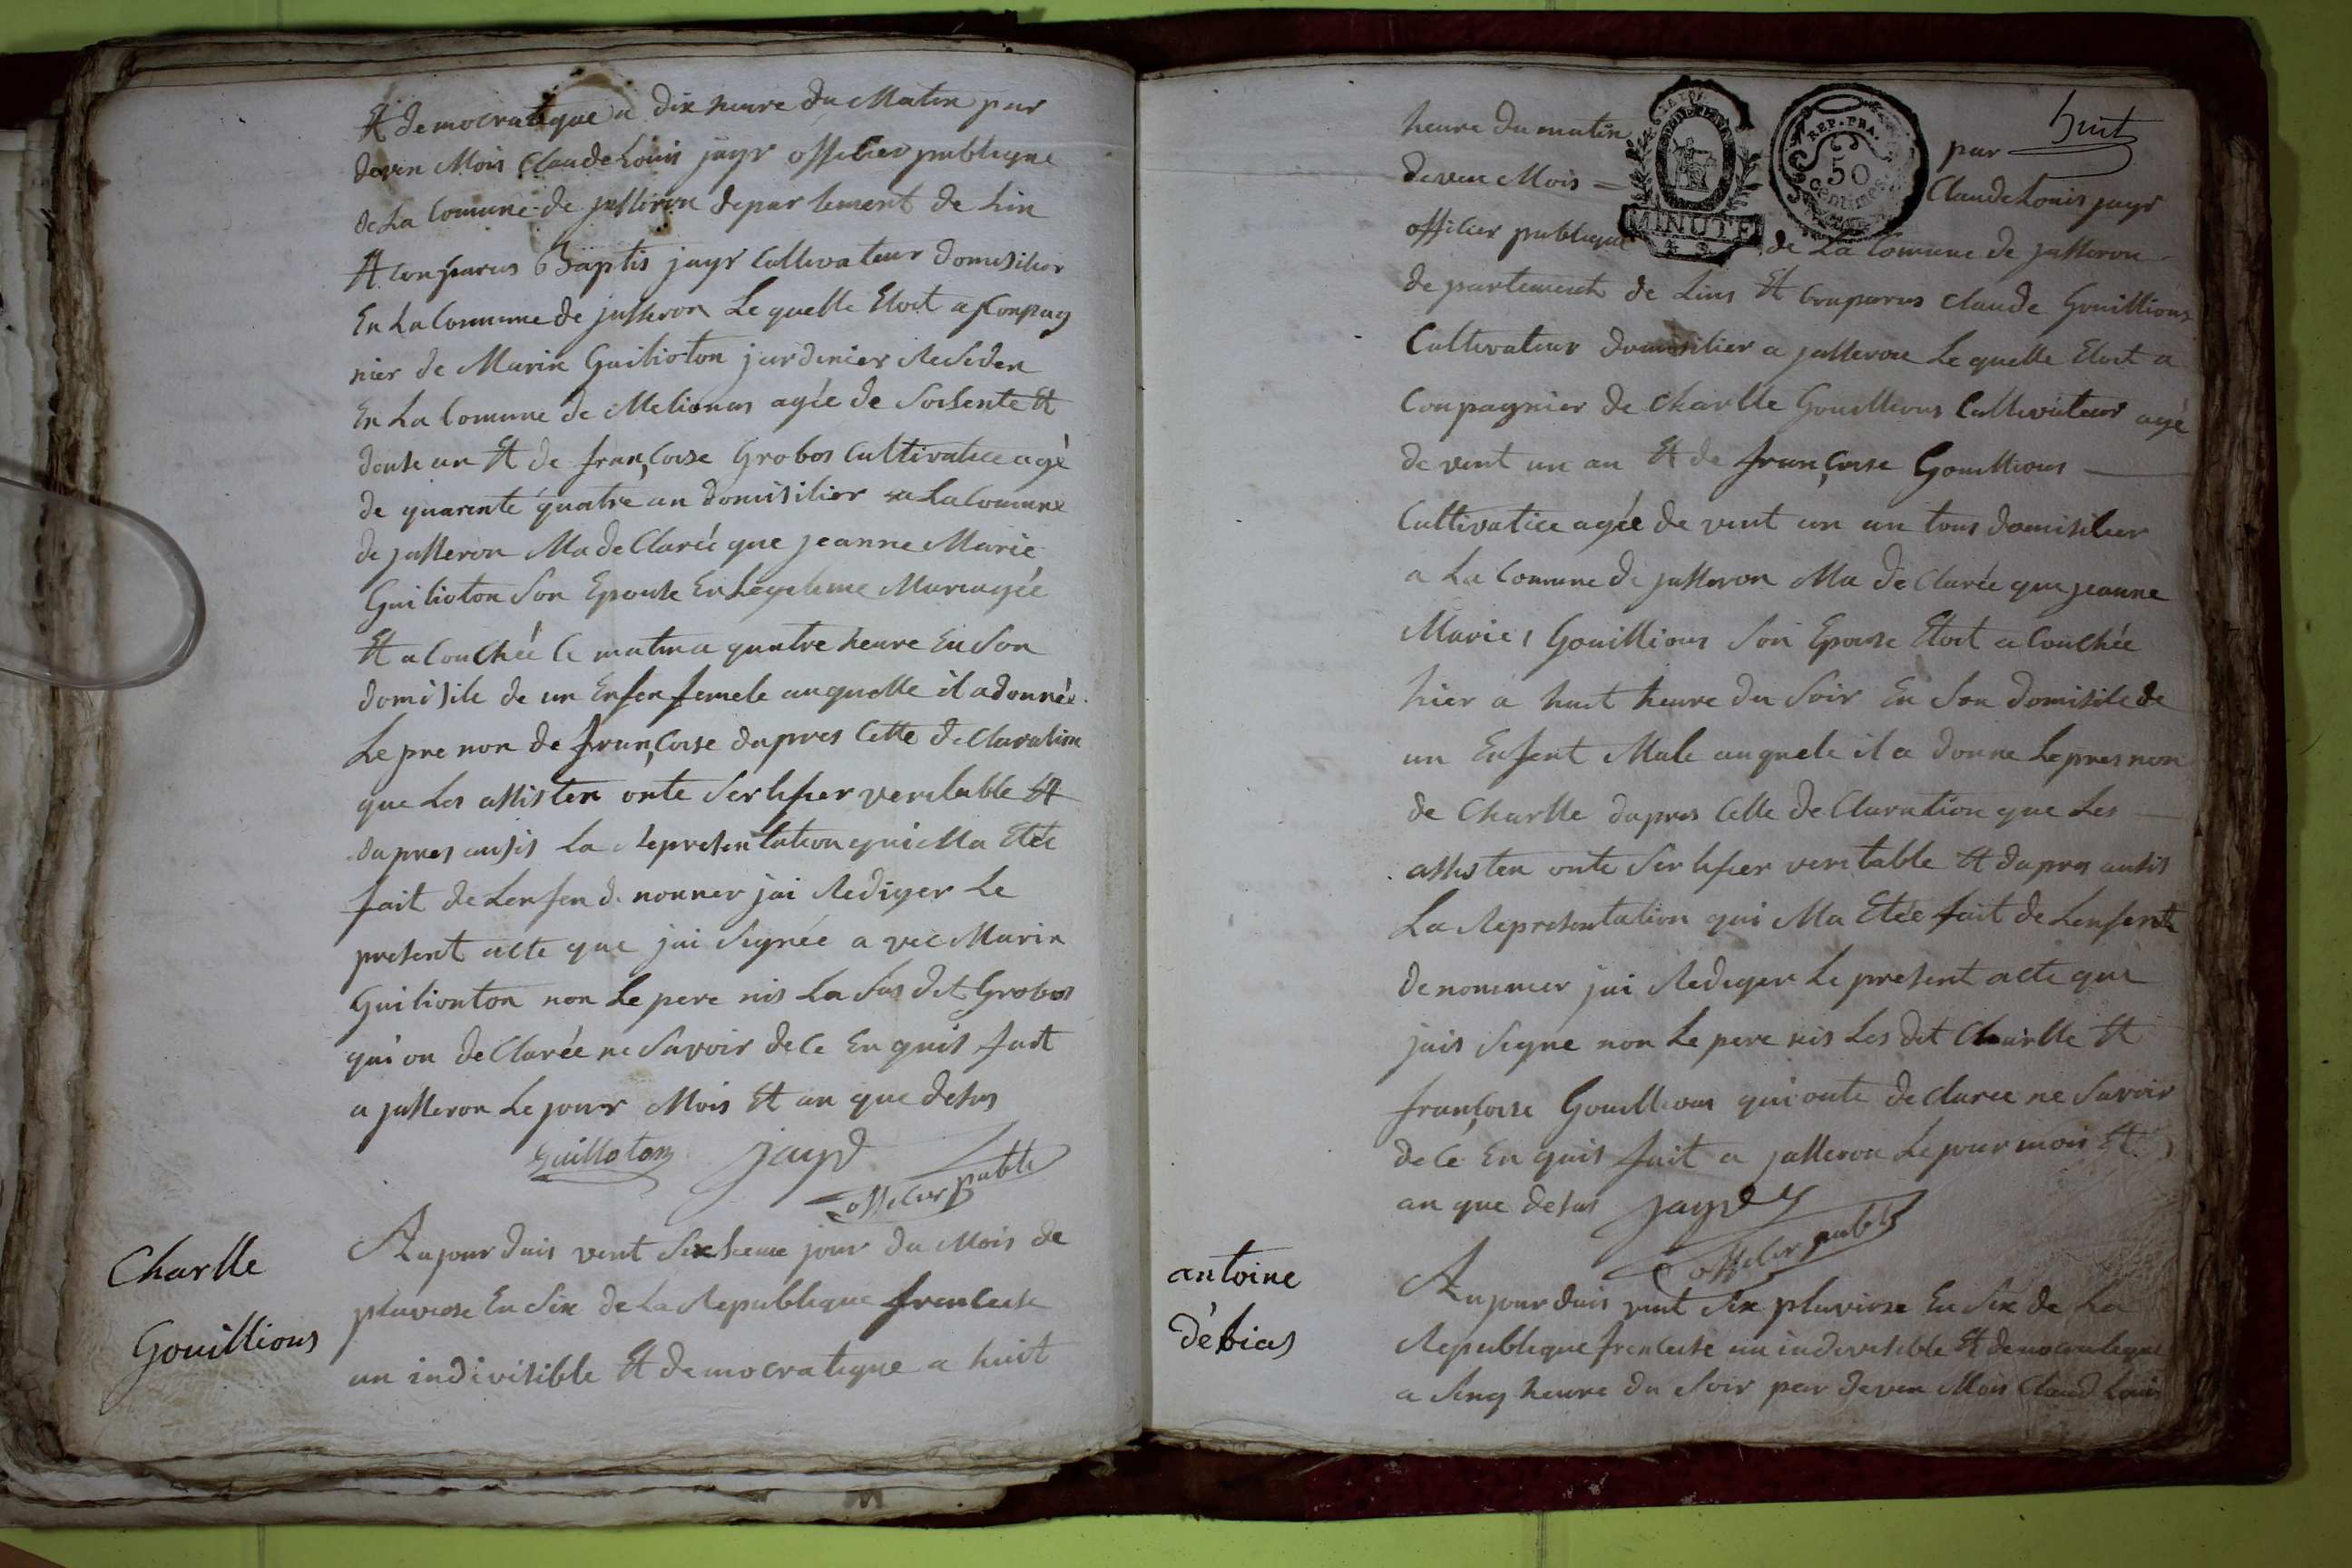 Et democratique a dix heure du Matin par
deven Mois Claude Louis jayr officier publique
de La Comune de jasseron departement de Lin
Et conparus Baptis jayr Cultivateur domisilier
En La Comune de jasseron Le quelle Etoit a Conpag
nier de Marin Guilioton jardinier Residen
En La Comune de Melionas agée de Soisente Et
douse an Et de françoise Grobos Cultivatice agé
de quarente quatre an domisilier a La Comune
de jasseron Ma de Clarée que jeanne Marie
Guilioton Son Epouse En Legetime Mareagée
Et a Couchée Ce matin a quatre heure En Son
domisile de un Enfen femele auquelle il a donnée
Le pre non de françoise dapres Cette de Claration
que Les assisten onte Sertifier veritable Et
dapres ausis La Representation qui Ma Etée
fait de Lenfen de nonner jai Rediger Le
present acte que jai Signée a vec Marin
Guilionton non Le pere nis La Sus dit Grobos
qui on de Clarée ne Savoir de Ce En quis fait
a jasseron Le jour Mois Et an que desus
Guilloton jayr
officier publle
Charlle
Gouillious
Aujour duis vent Sixseme jour du Mois de
pluviose En Six de La Republique francese
un indivisible Et democratique a huit
huit
heure du matin par
deven Mois = Claude Louis jayr
officier publique de La Comune de jasseron
REP. FRA.
50
Centimes
MINUTE
departement de Lins Et Conparus Claude Gouillious
Cultivateur domisilier a jasseron Le quelle Etoit a
Conpagnier de Charlle Gouillious Cultivateur agé
de vent un an Et de françoise Gouillious
Cultivatice agée de vent un an tous domisilier
a La Comune de jasseron Ma de Clarée que jeanne
Marie Gouillious Son Epouse Etoit a Couchée
hier a huit heure du Soir En Son domisile de
un Enfent Male auquele il a donne Le pres non
de Charlle dapres Cette de Claration que Les
assisten onte Sertifier veritable Et dapres ausis
La Representation qui Ma Etée fait de Lenfente
denommer jai Rediger Le present acte que
jais Signe non Le pere nis Les dit Charlle Et
françoise Gouillious qui onte de Claree ne Savoir
de Ce En quis fait a jasseron Le jour mois Et
an que desus jayr
officier publ
antoine
débias
Aujour duis vent Six pluviose En Six de La
Republique francese un indivisible Et democratique
a Sinq heure du Soir par deven Mois Claud Louis